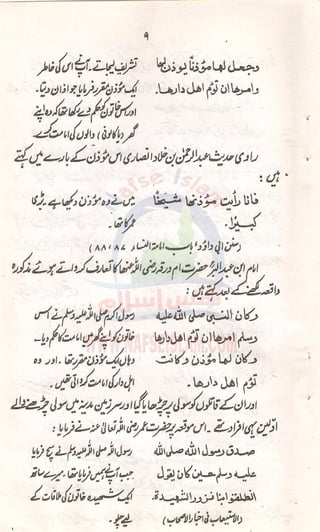 ۹
وجعل لها مؤذناً يوذن لها تشریف لیجاتے۔ آپ نے اس کی خاطر
وامرها ان تؤم اهل دارها۔ ایک مؤذن مقرر فرمایا جو اذان دیتا۔
اور اس خاتون کو حکم دے رکھا تھا کہ وہ اپنے
گھر (یا کالونی) والوں کی امامت کرے۔
راوی حدیث عبدالرحمٰن بن خلاد انصاری اس مؤذن کے بارے میں کہتے
ہیں:
فانا رأيت مؤذنها شيخاً میں نے وہ مؤذن دیکھا ہے بڑی
كبيراً۔ عمر کا تھا۔
(سنن ابی داؤد باب امامة النساء ۸۷،۸۸)
امام ابن عبدالبر حضرت ام ورقہ رضی اللہ عنہا کا تعارف کرواتے ہوئے مذکورہ
واقعہ لکھنے کے بعد کہتے ہیں:
وكان النبي صلى الله عليه رسول اکرم صلی اللہ علیہ وسلم نے اسی
وسلم امرها ان تؤم اهل دارها خاتون کو اپنے گھر میں امامت کا حکم دیا۔
وكان لها مؤذن وكانت وہاں ایک مؤذن مقرر تھا۔ اور وہ
تؤم اهل دارها۔ اہل دار کی امامت کرواتی تھیں۔
اور ان کے قاتلوں کو سولی پر چڑھایا گیا اور سرزمین مدینہ میں سولی چڑھنے والے
اوّلین یہی افراد تھے۔ اس موقعہ پر حضرت عمر رضی اللہ تعالیٰ عنہ نے فرمایا:
صدق رسول الله صلى الله رسول اللہ صلی اللہ علیہ وسلم نے سچ فرمایا
عليه وسلم حين كان يقول جب آپ نے ہمیں فرمایا تھا۔ میرے ساتھ
انطلقوا بنا نزور الشهيدة۔ ایک شہیدہ خاتون کی ملاقات کے
(الاستیعاب فی اخبار الاصحاب) لیے چلو۔